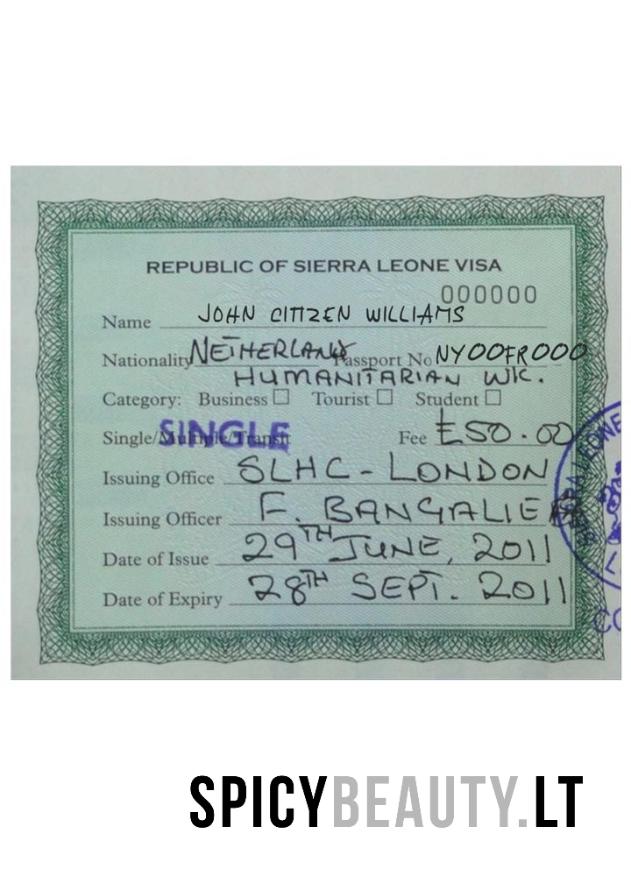 REPUBLIC OF SIERRA LEONE VISA
000000
Name JOHN CITIZEN WILLIAMS
Nationality NETHERLAND Passport No NY00FR000
HUMANITARIAN WK.
Category: Business Tourist Student
Single/Multiple/Transit SINGLE Fee £50.00
Issuing Office SLHC-LONDON
Issuing Officer F. BANGALIE
Date of Issue 29TH JUNE, 2011
Date of Expiry 28TH SEPT. 2011
SPICYBEAUTY.LT